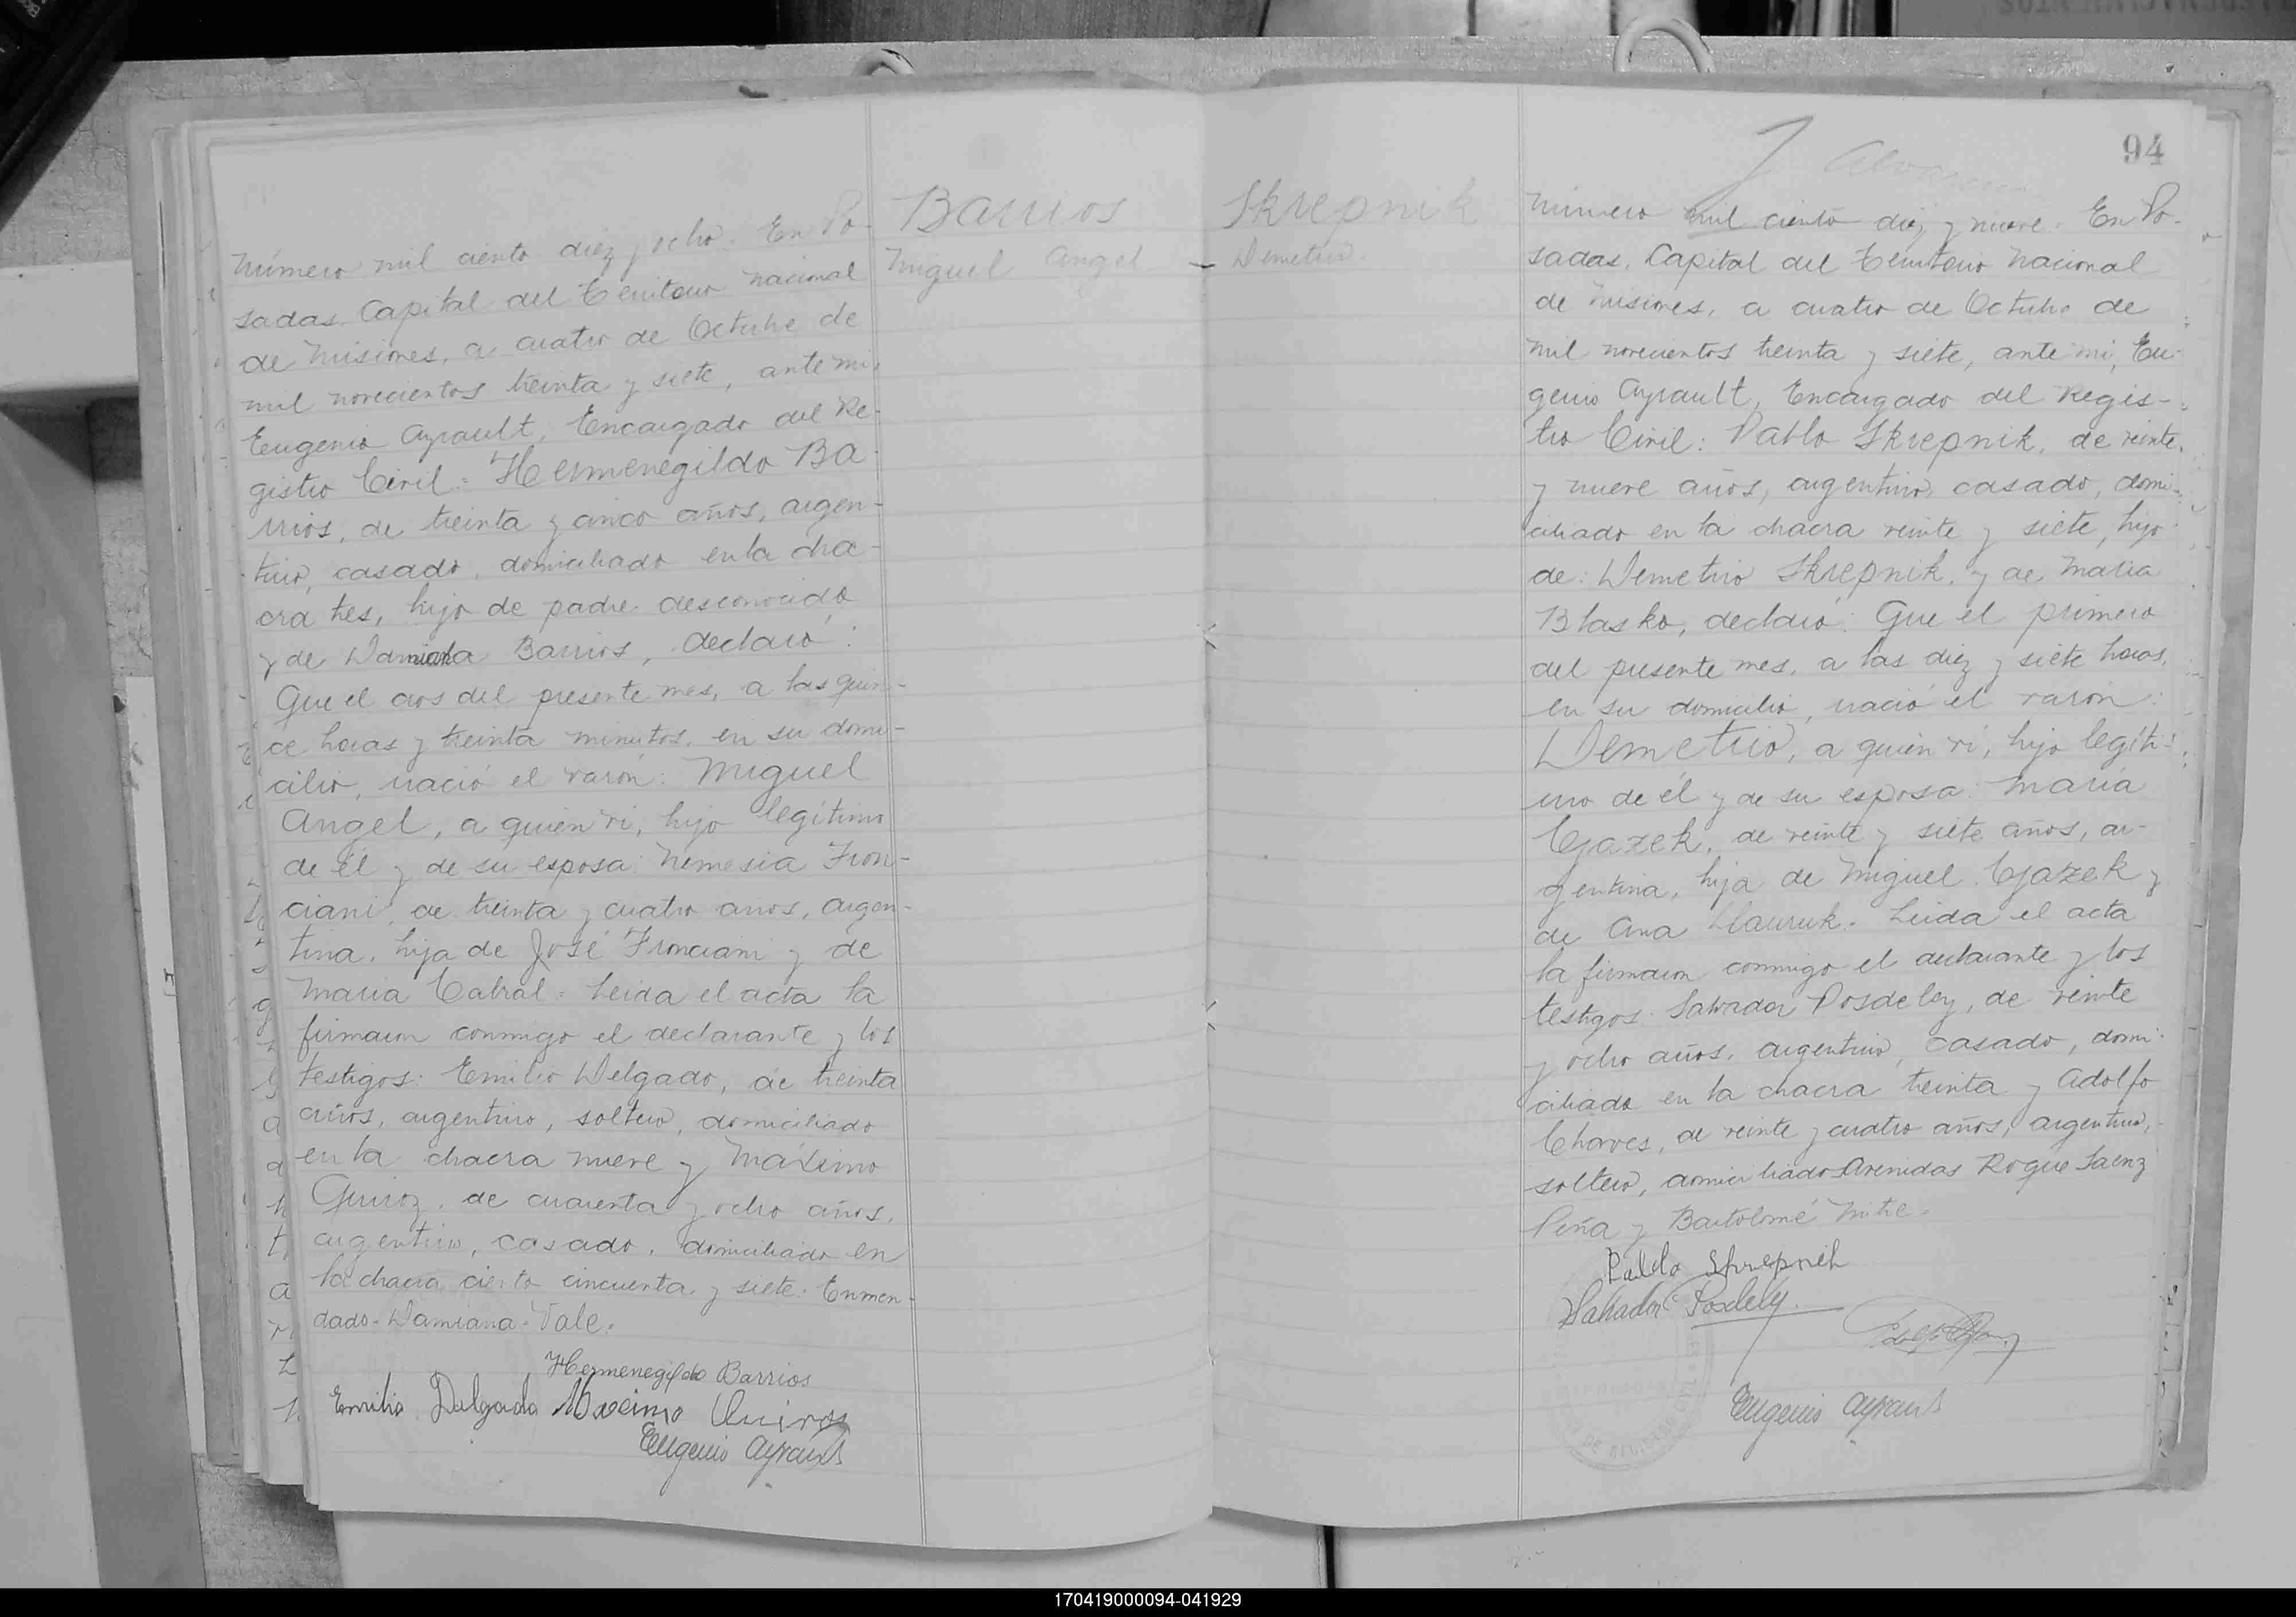 Número mil ciento diez y ocho. En Po-
sadas. Capital del Territorio Nacional
de Misiones, a cuatro de Octubre de
mil novecientos treinta y siete, ante mi,
Eugenio Ayrault, Encargado del Re-
gistro Civil: Hermenegildo Ba-
rrios, de treinta y cinco años, argen-
tino, casado, domiciliado en la cha-
cra tres, hijo de padre desconocido
y de Damiana Barrios, declaró:
Que el dos del presente mes, a las quin-
ce horas y treinta minutos, en su domi-
cilio, nació el varón: Miguel
Angel, a quien ví, hijo legítimo
de él y de su esposa: Nemesia Fron-
ciani, de treinta y cuatro años, argen-
tina, hija de José Fronciani y de
Maria Cabral. Leida el acta la
firmaron conmigo el declarante y los
testigos: Emilio Delgado, de treinta
años, argentino, soltero, domiciliado
en la chacra nueve y Máximo
Quiroz, de cuarenta y ocho años,
argentino, casado, domiciliado en
la chacra ciento cincuenta y siete. Enmen-
dado-Damiana-Vale.
Hermenegildo Barrios
Emilio Delgado Maximo Quiros
Eugenio Ayrault
Barrios
Miguel Angel
Skrepnik
Demetrio.
94
Número mil ciento diez y nueve. En Po-
sadas. Capital del Territorio Nacional
de Misiones, a cuatro de Octubre de
mil novecientos treinta y siete, ante mi, Eu-
genio Ayrault, Encargado del Regis-
tro Civil: Pablo Skrepnik, de veinte
y nueve años, argentino, casado, domi-
ciliado en la chacra veinte y siete, hijo
de: Demetrio Skrepnik, y de Maria
Blasko, declaró: Que el primero
del presente mes, a las diez y siete horas,
en su domicilio, nació el varón:
Demetrio, a quien ví, hijo legíti-
mo de él y de su esposa: Maria
Czazek, de veinte y siete años, ar-
gentina, hija de Miguel Czazek y
de Ana Hauruk. Leida el acta
la firmaron conmigo el declarante y los
testigos: Salvador Posdeley, de veinte
y ocho años, argentino, casado, domi-
ciliado en la chacra treinta y Adolfo
Chaves, de veinte y cuatro años, argentino,
soltero, domiciliado Avenidas Roque Saenz
Peña y Bartolomé Mitre.
Pablo Skrepnik
Salvador Posdeley.
Eugenio Ayrault
170419000094-041929